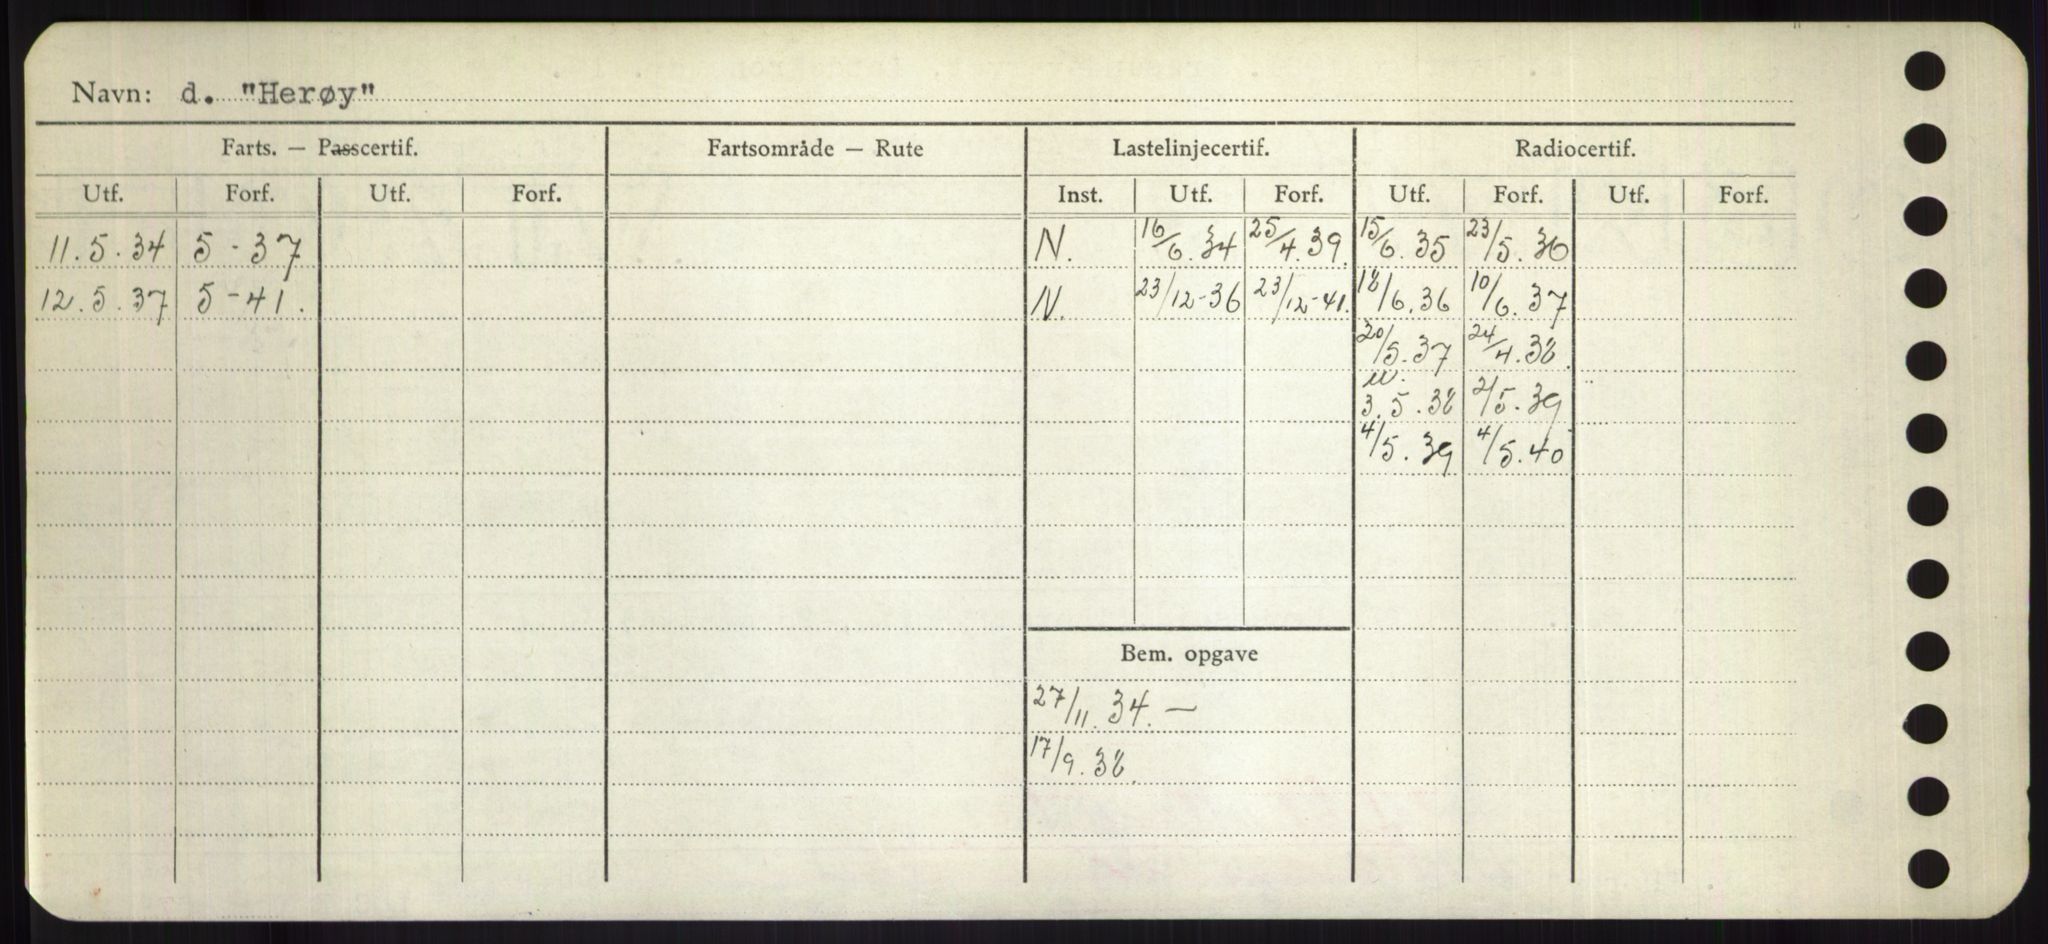 Navn: d. "Herøy"
Farts. — Passcertif. Fartsområde — Rute Lastelinjecertif. Radiocertif.
Utf. Forf. Utf. Forf. Inst. Utf. Forf. Utf. Forf. Utf. Forf.
11.5.34 5-37 N. 16/6.34 25/4.39. 15/6.35 23/5.36
12.5.37 5-41. N. 23/12-36 23/12-41. 18/6.36 10/6.37
20/5.37 24/4.38.
3.5.38 2/5.39
4/5.39 4/5.40
Bem. opgave
27/11.34.—
17/9.38.